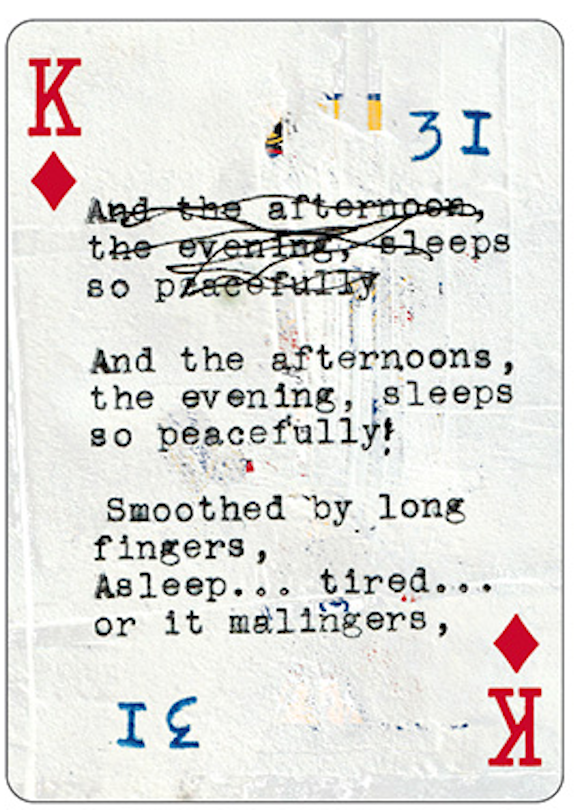 K
31
And the afternoon,
the evening, sleeps
so peacefully
And the afternoons,
the evening, sleeps
so peacefully!
Smoothed by long
fingers,
Asleep... tired...
or it malingers,
31
K